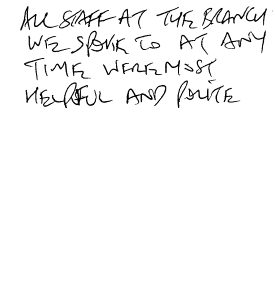 ALL STAFF AT THE BRANCH
WE SPOKE TO AT ANY
TIME WERE MOST
HELPFUL AND POLITE